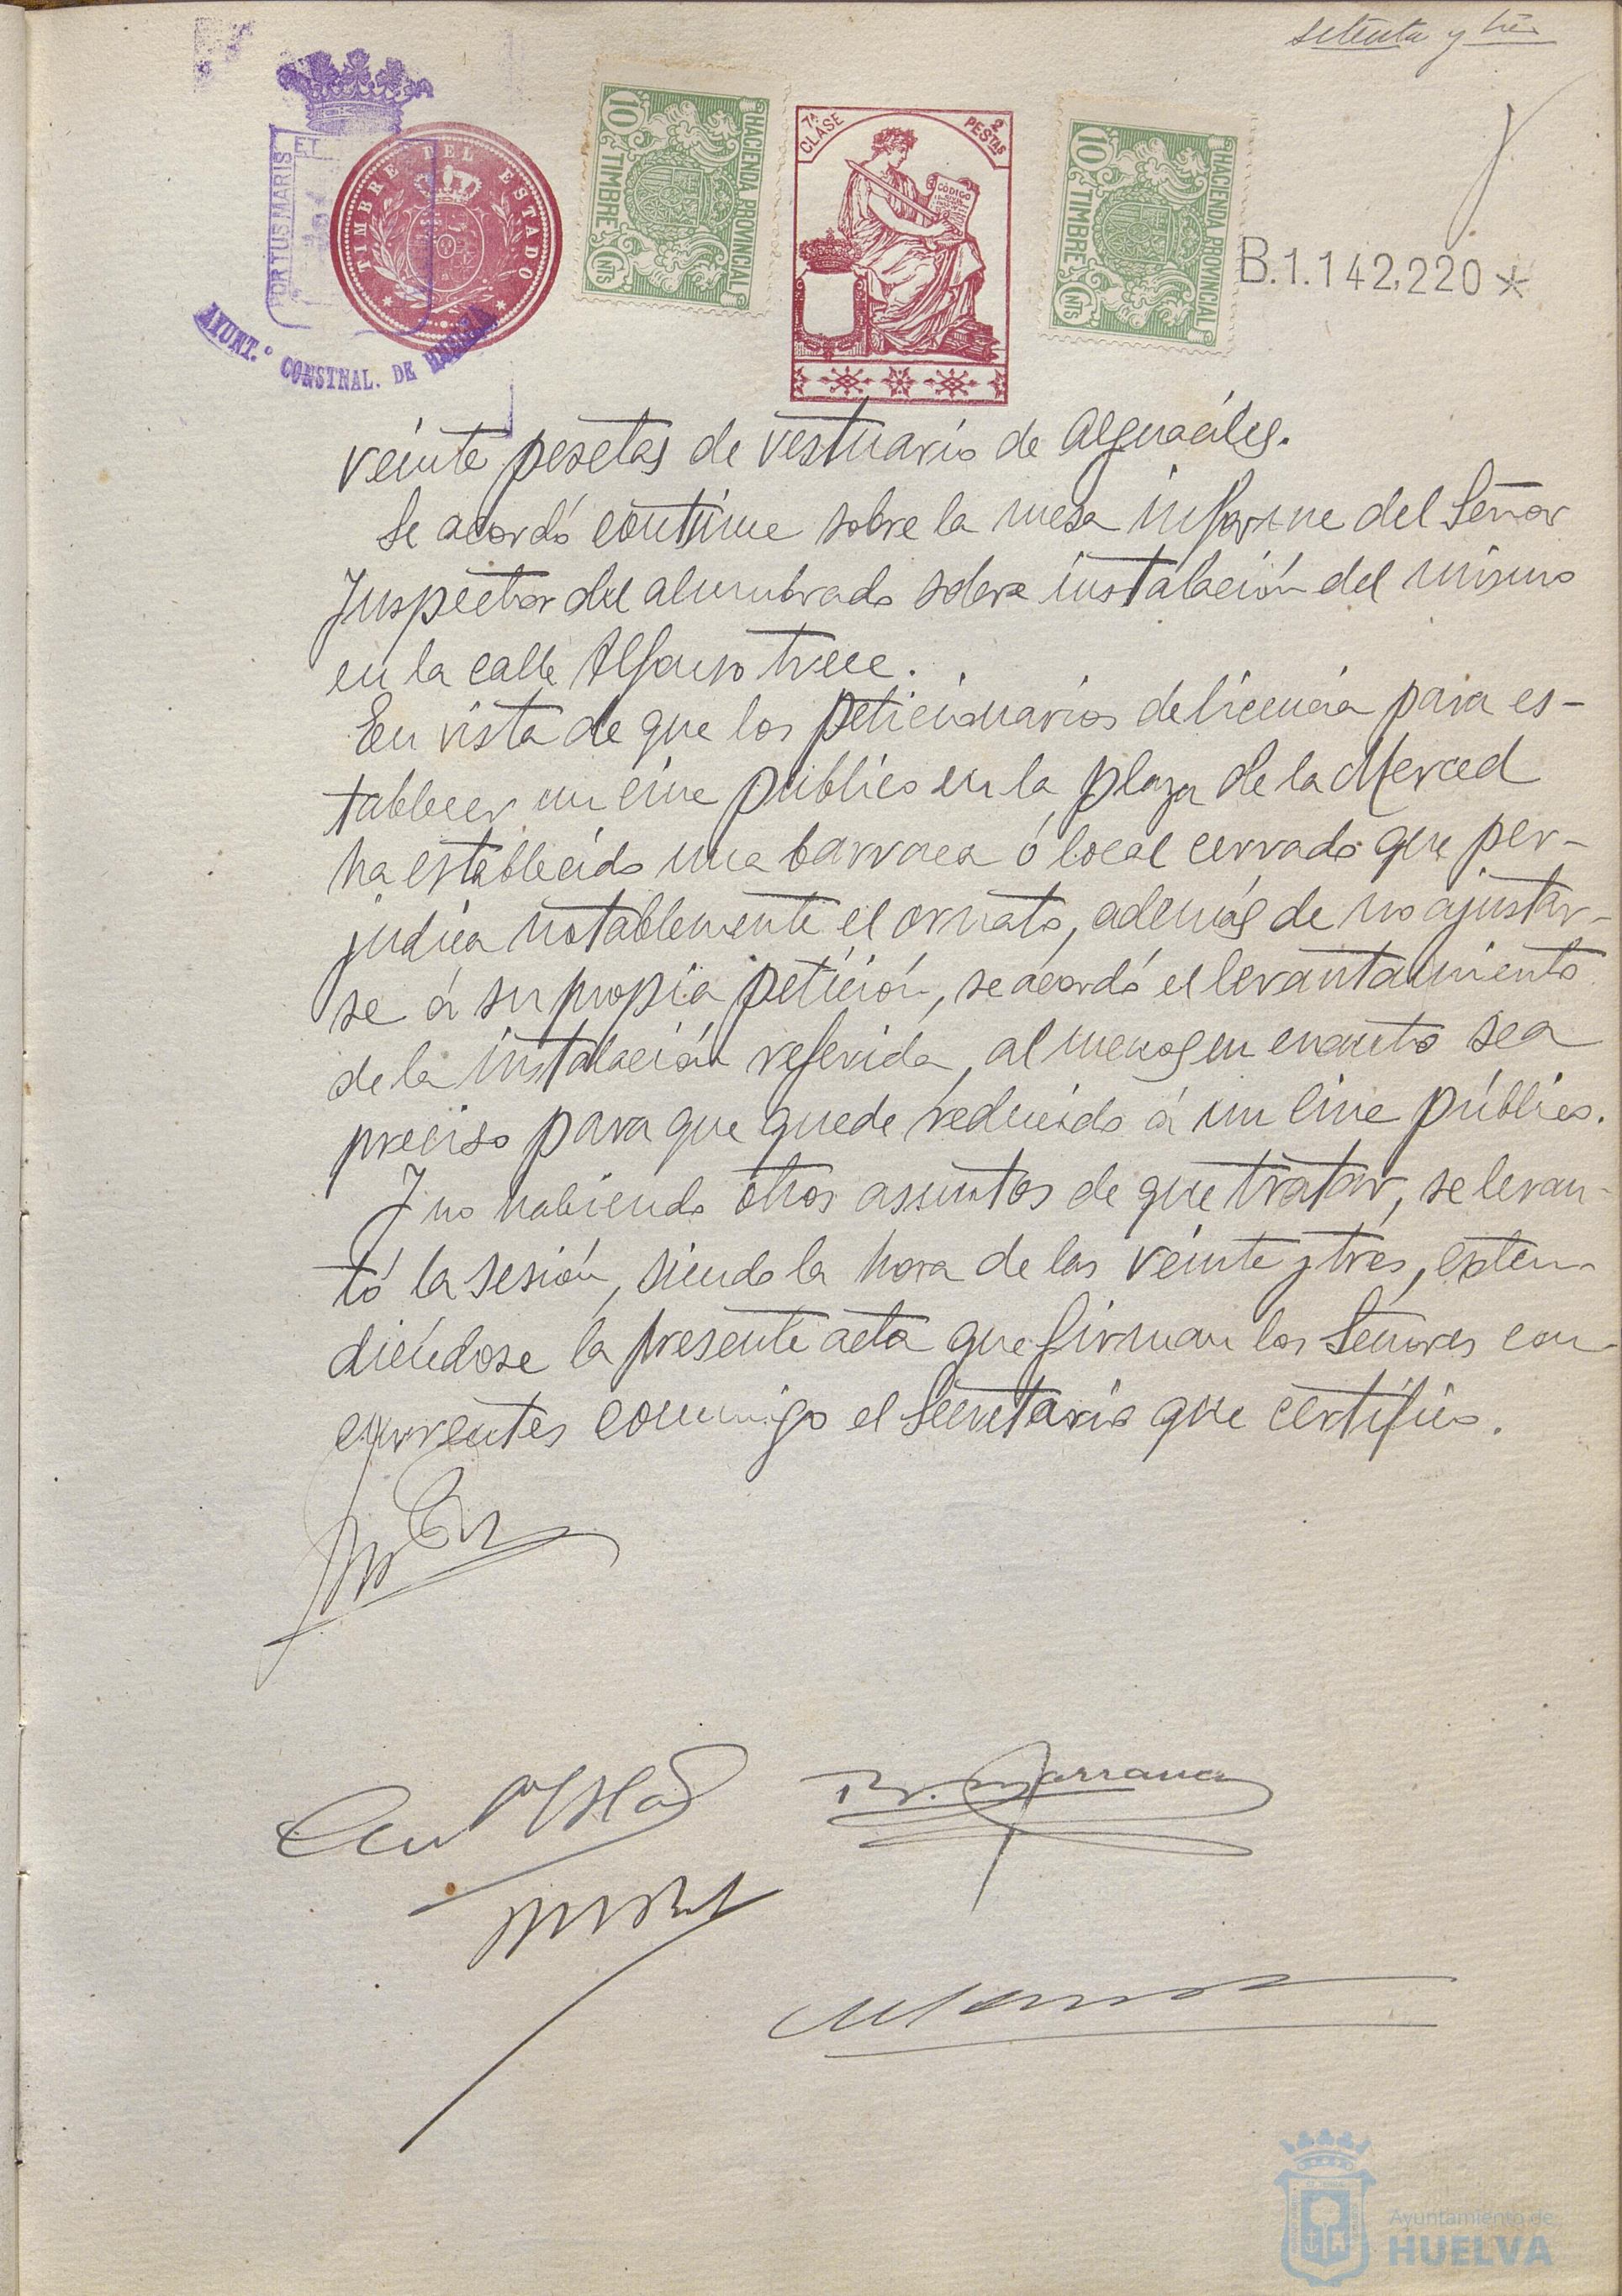 setenta y tres
PORTUS MARIS ET
AYUNT.º CONSTNAL. DE HUELVA
TIMBRE DEL ESTADO
10 TIMBRE CNTS
HACIENDA PROVINCIAL
7ª CLASE
2 PESTAS
CODIGO
10 TIMBRE CNTS
HACIENDA PROVINCIAL
B.1.142,220*
veinte pesetas de vestuario de Alguaciles.
Se acordó continue sobre la mesa informe del Señor
Inspector del alumbrado sobre instalación del mismo
en la calle Alfonso trece.
En vista de que los peticionarios de licencia para es-
tablecer un cine público en la plaza de la Merced
ha establecido una barraca ó local cerrado que per-
judica notablemente el ornato, además de no ajustar-
se á su propia petición, se acordó el levantamiento
de la instalación referida, al menos en cuanto sea
preciso para que quede reducido á un cine público.
Y no habiendo otros asuntos de que tratar, se levan-
tó la sesión, siendo la hora de las veinte y tres, exten-
diéndose la presente acta que firman los Señores con-
currentes conmigo el Secretario que certifico.
Ayuntamiento de
HUELVA